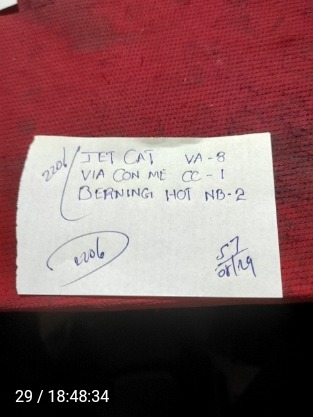 2206 JET CAT VA-8
VIA CON ME CC-1
BERNING HOT NB-2
2206
57
08/29
29 / 18:48:34